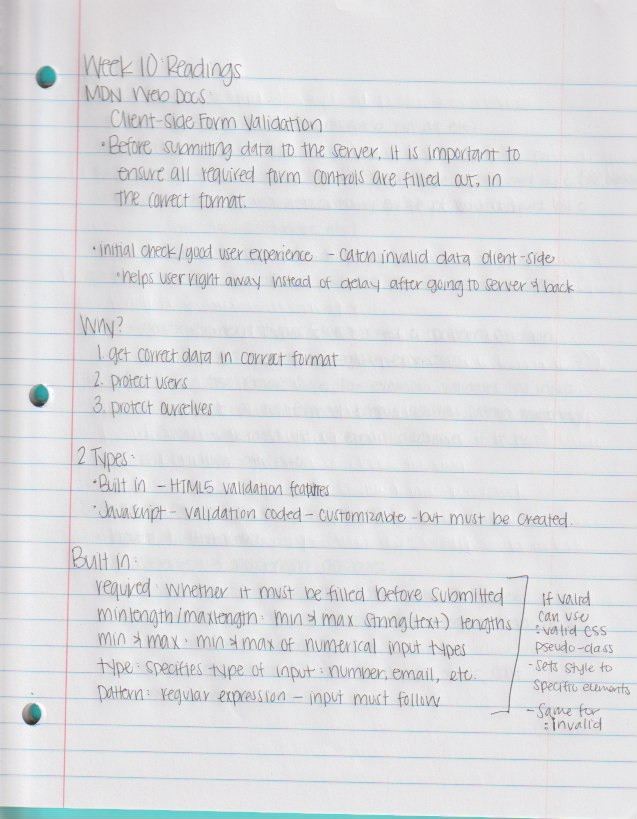 Week 10: Readings
MDN Web Docs:
Client-side Form Validation
• Before submitting data to the server, it is important to
ensure all required form controls are filled out, in
the correct format.
• initial check/good user experience - catch invalid data client-side
• helps user right away instead of delay after going to server & back
Why?
1. get correct data in correct format
2. protect users
3. protect ourselves
2 Types:
• Built in - HTML5 validation features
• Javascript - validation coded - customizable - but must be created.
Built in:
required: whether it must be filled before submitted
minlength/maxlength: min & max string(text) lengths
min & max: min & max of numerical input types
type: specifies type of input: number, email, etc.
pattern: regular expression - input must follow
If valid
can use
:valid CSS
pseudo-class
- sets style to
specific elements
- same for
:invalid